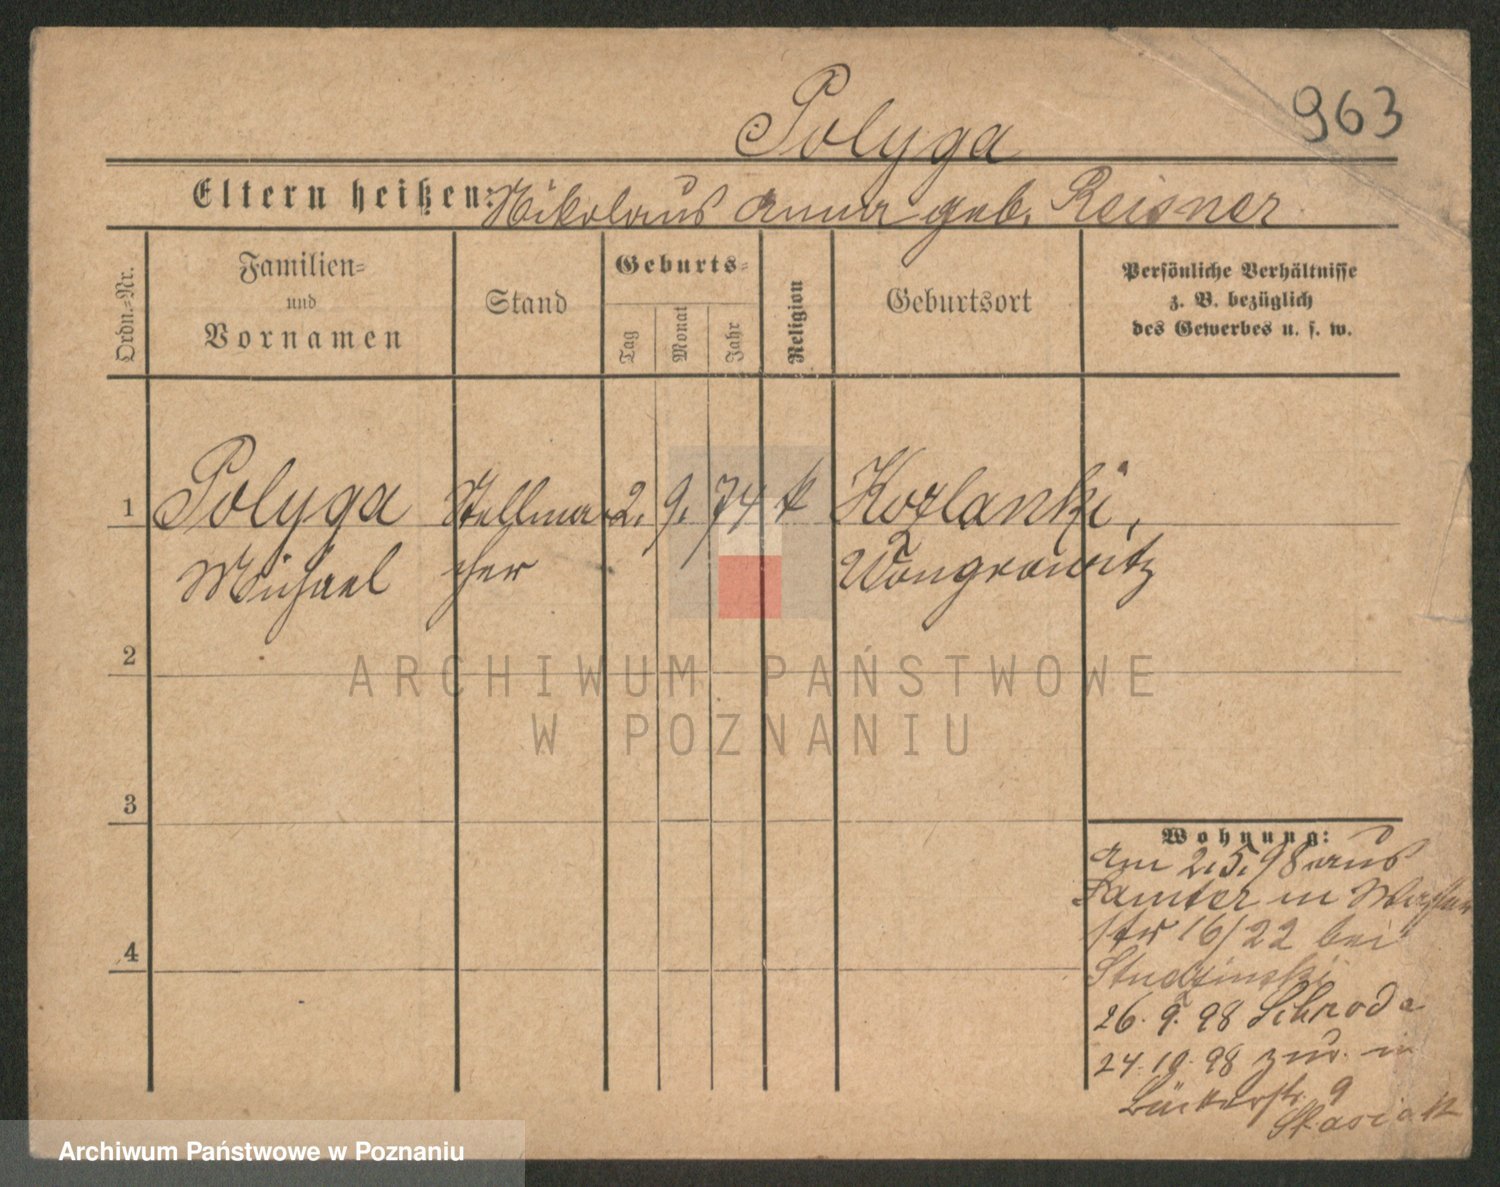 963
Polyga
Eltern heißen: Nikolaus Anna geb. Reisner
Ordn.-Nr.
Familien-
und
Vornamen
Stand
Geburts-
Tag
Monat
Jahr
Religion
Geburtsort
Persönliche Verhältnisse
z. B. bezüglich
des Gewerbes u. s. w.
1 Polyga Stellma- 2. 9. 74 k Kozlanki,
Michael cher Wongrowitz
2
ARCHIWUM PAŃSTWOWE
W POZNANIU
3
Wohnung:
am 2.5.98 aus
Samter in
str 16/22 bei
Studzinski
26.9.98 Schroda
24.10.98 zur. in
Bäckerstr. 9
4
Archiwum Państwowe w Poznaniu